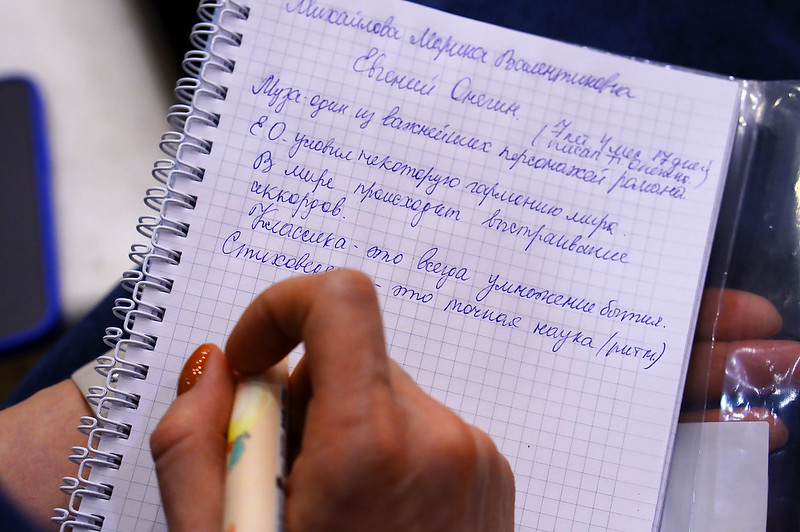 Михайлова Марика Валентиновна
Евгений Онегин.
(7 лет 4 мес 17 дней
писал П Онегина.)
Муза- один из важнейших персонажей романа.
Е О- уловил некоторую гармонию мира.
В мире происходит выстраивание
аккордов.
Классика- это всегда умножение бытия.
- это точная наука (ритм.)